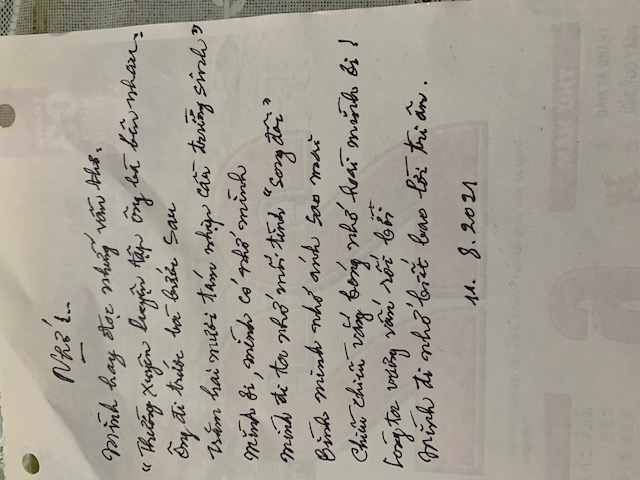 Nhớ !...
Mình hay đọc những vần thơ.
"Thường xuyên luyện tập ông bà bên nhau.
Ông đi trước bà bước sau
Trăm hai mươi tám nhịp cầu trường sinh"
Mình ơi, mình có nhớ mình
Mình đi ta nhớ mối tình "Song đôi"
Bình minh nhớ ánh sao mai
Chiều chiều vắng bóng nhớ hoài mình ơi !
Lòng ta vương vấn rối bời
Mình đi nhớ biết bao lời tri ân.
11. 8. 2021
THỨ NĂM
THÁNG ẤT MÃO
NGÀY QUÝ SỬU